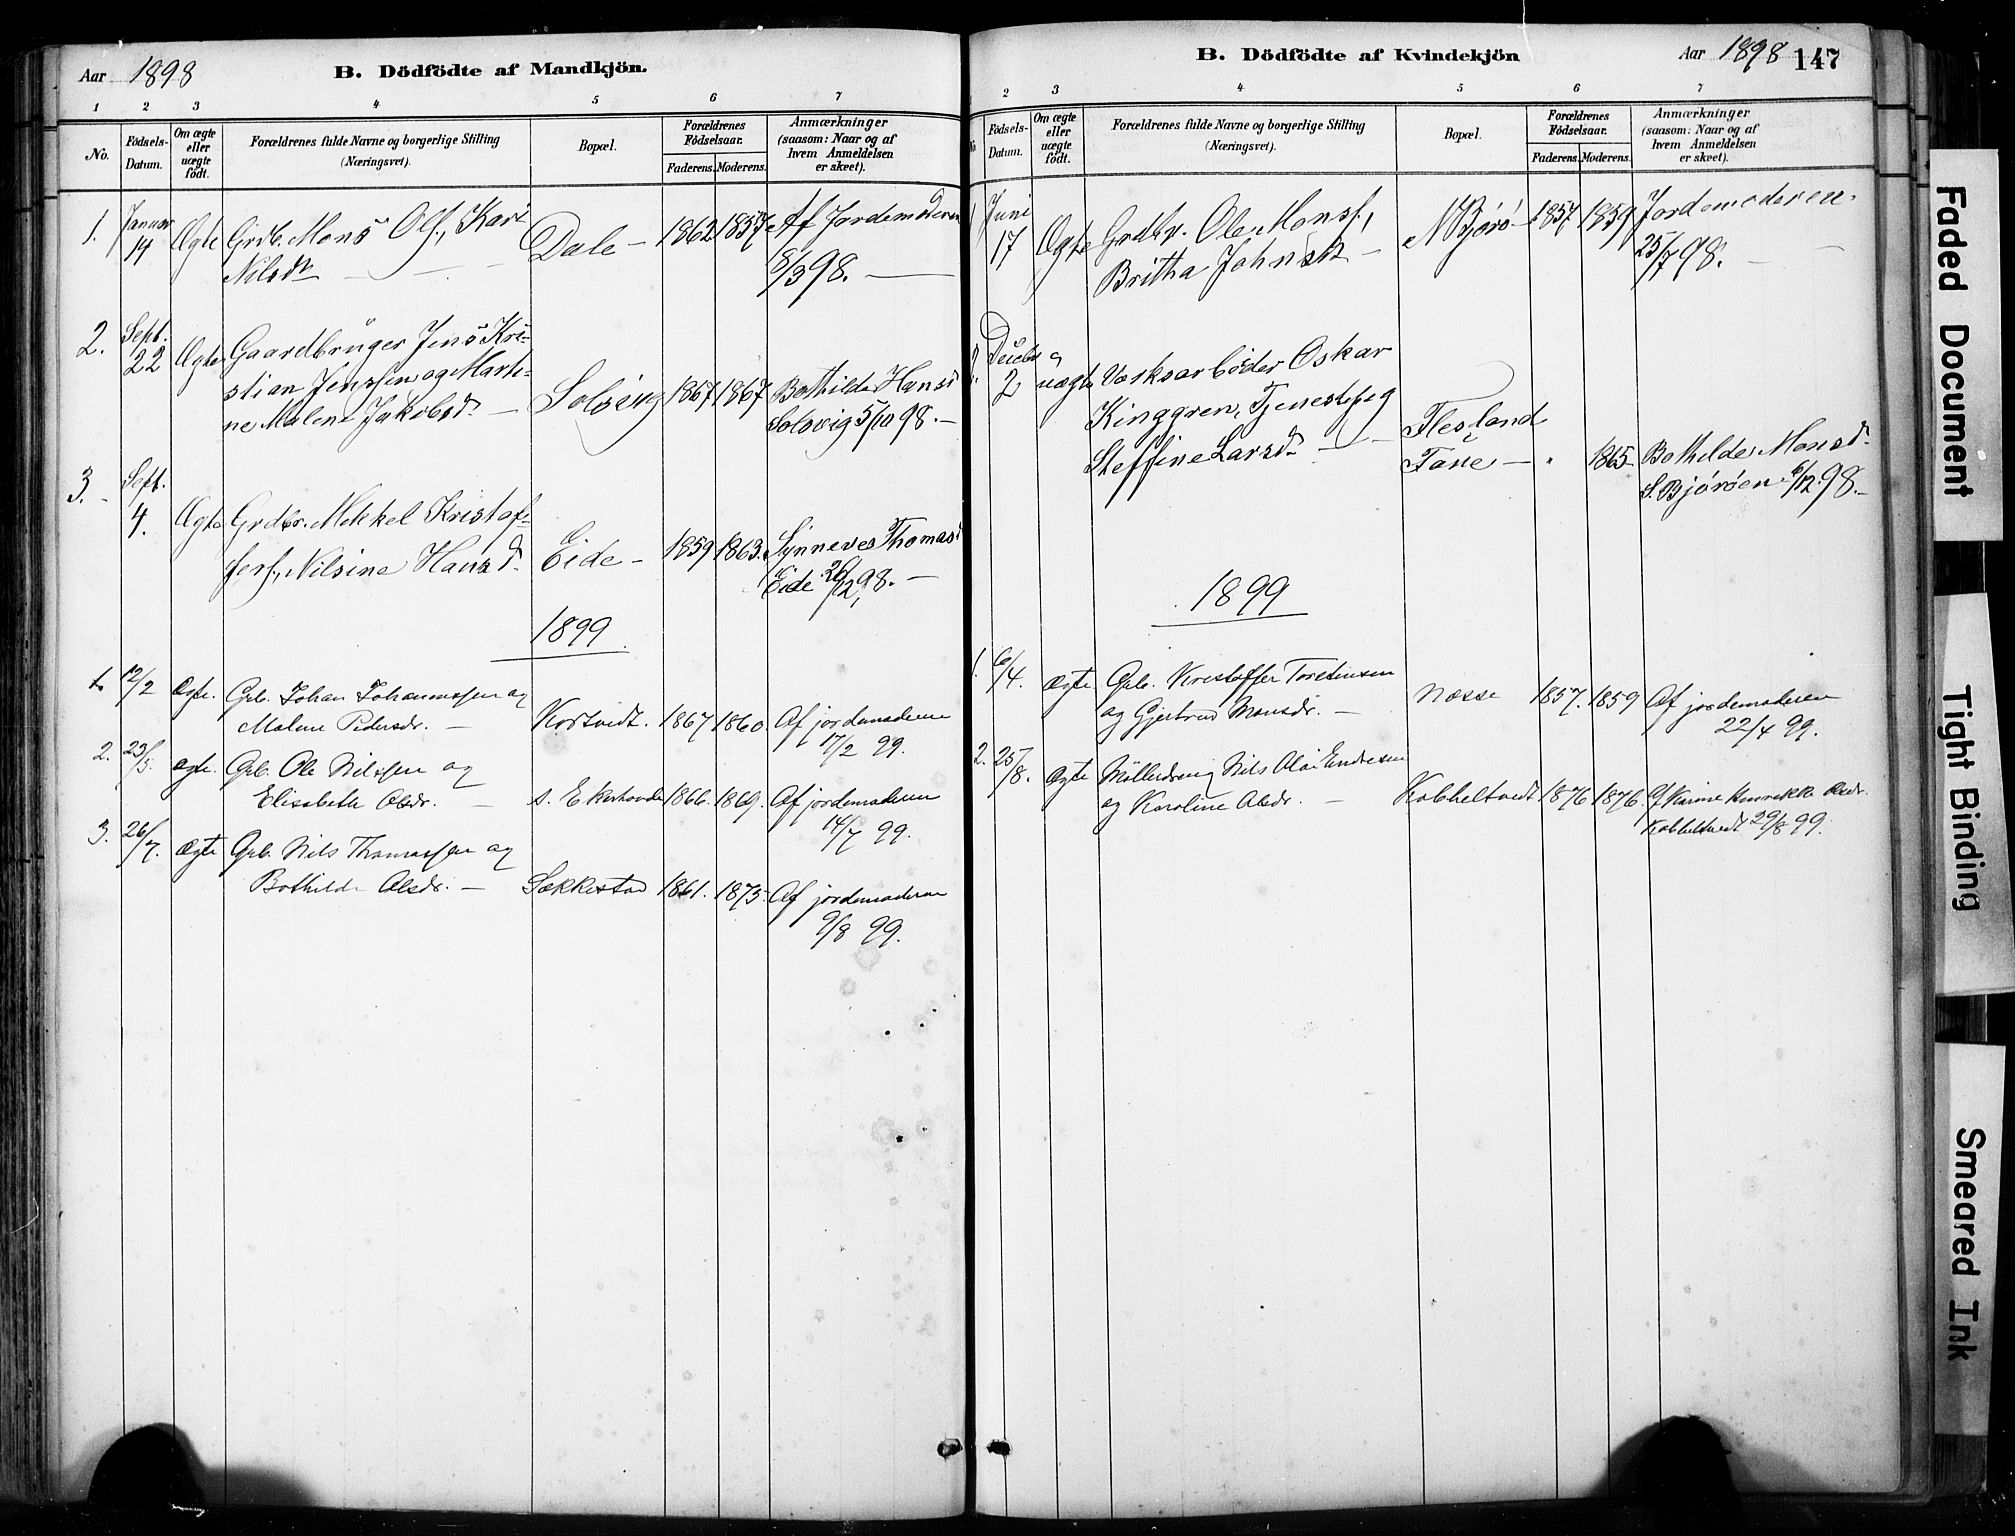 Aar 1898
B. Dödfödte af Mandkjön.
1 2 3 4 5 6 7
No.
Födsels-
Datum.
Om ægte
eller
uægte
födt.
Forældrenes fulde Navne og borgerlige Stilling
(Næringsvei).
Bopæl.
Forældrenes
Födselsaar.
Faderens. Moderens.
Anmærkninger
(saasom: Naar og af
hvem Anmeldelsen
er skeet).
1. Januar Ægte Grdb. Mons Ols., Kari Dale – 1862 1857 Af Jordemoderen
14 Nilsdt 8/3 98.
2. Sept. Ægte Gaardbruger Jens Kri-
22 stian Jenssen og Marti- Solvig 1867 1867 Bothilde Hansd
ne Malene Jakobsd. – Solvig 5/10 98. –
3. Sept. Ægte Grdbr. Mikkel Kristof-
4. fers., Nilsine Hansd. Eide – 1859 1863. Synneve Thomasd
Eide 26/12 98. –
1899
1. 12/2 ægte. Grb. Johan Johannessen og
Malene Pedersdr. – Kortvedt. 1867 1860. Af jordemoderen
17/2 99.
2. 23/5. ægte. Grb. Ole Nilssen og
Elisabeth Olsdr. – s. Ekerhovde 1866. 1869. Af jordemoderen
14/7 99.
3. 26/7. ægte Grb. Nils Thomassen og
Bothilde Olsdr. – Sækkestad 1861. 1873. Af jordemoderen
9/8 99.
B. Dödfödte af Kvindekjön
Aar 1898 147
2 3 4 5 6 7
No.
Födsels-
Datum.
Om ægte
eller
uægte
födt.
Forældrenes fulde Navne og borgerlige Stilling
(Næringsvei).
Bopæl.
Forældrenes
Födselsaar.
Faderens. Moderens.
Anmærkninger
(saasom: Naar og af
hvem Anmeldelsen
er skeet).
1 Juni Ægte Grdbr. Ole Mons., N Bjørø – 1857 1859 Jordemoderen.
17 Britha Johnsdt – 25/7 98.
2 uægte Værksarbeider Oskar
Kinggren, Tjenestepig Flesland
Steffine Larsd. – Fane – " 1865 Bothilde Monsd.
S. Bjørøen 6/12 98. –
1899
1. 6/4. ægte Grb. Kristoffer Torstensen
og Gjertrud Monsdr. – Næsse 1857. 1859 Af jordemoderen
22/4 99.
2. 25/8. ægte Møllerdreng Nils Olai Endresen
og Karoline Olsdr. – Kobbeltvedt 1876 1876. Af Karine Henrikke
Kobbeltvedt 29/8 99.
Faded Document
Tight Binding
Smeared Ink